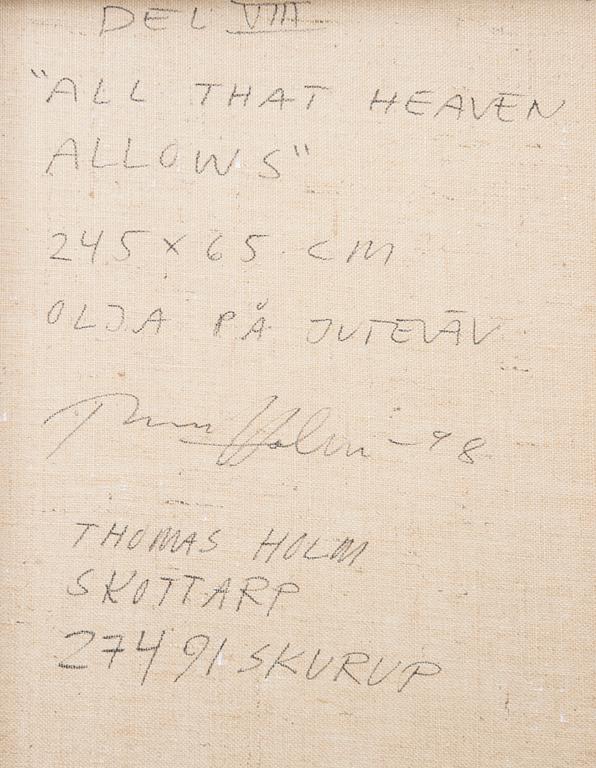 DEL VIII
"ALL THAT HEAVEN
ALLOWS"
245 x 65 CM
OLJA PÅ JUTEVÄV
Thomas Holm -98
THOMAS HOLM
SKOTTARP
27491 SKURUP